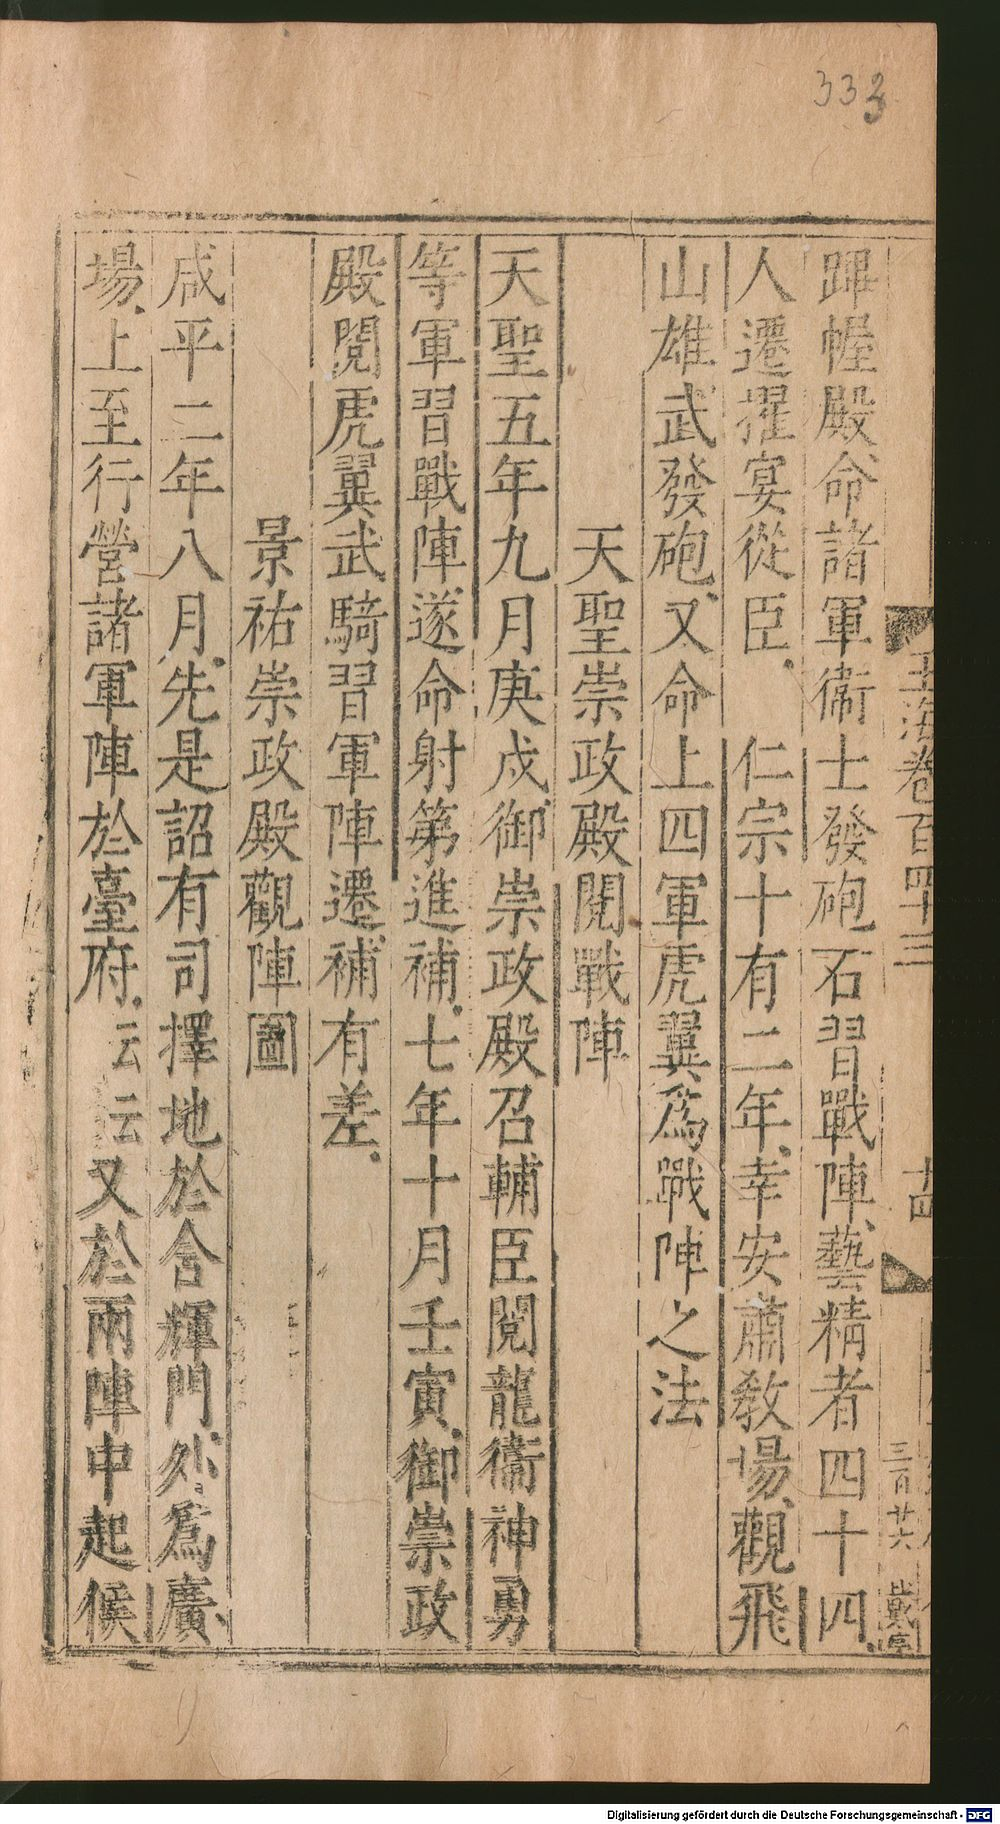 333
玉海卷百四十三
十四
三百廿六
戴
蹕幄殿命諸軍衞士發砲石習戰陣藝精者四十四
人遷擢宴從臣 仁宗十有二年幸安肅教場觀飛
山雄武發砲又命上四軍虎翼爲戰陣之法
天聖崇政殿閱戰陣
天聖五年九月庚戌御崇政殿召輔臣閱龍衞神勇
等軍習戰陣遂命射第進補七年十月壬寅御崇政
殿閱虎翼武騎習軍陣遷補有差
景祐崇政殿觀陣圖
咸平二年八月先是詔有司擇地於含輝門外爲廣
場上至行營諸軍陣於臺府云云又於兩陣中起候
Digitalisierung gefördert durch die Deutsche Forschungsgemeinschaft - DFG